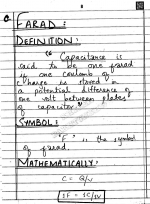 FARAD :
DEFINITION :
" Capacitance is
said to be one farad
if one coulomb of
charge is stored in
a potential difference of
one volt between plates
of capacitor."
SYMBOL :
"F" is the symbol
of farad.
MATHEMATICALLY :
C = Q/V
1F = 1C/1V